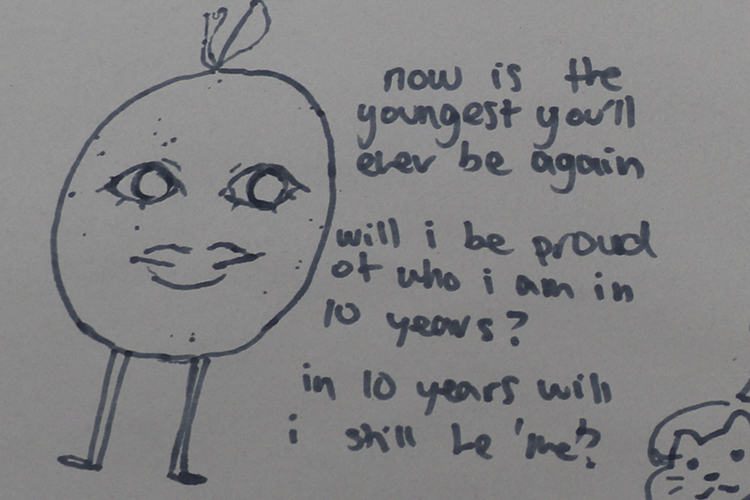 now is the
youngest you'll
ever be again
will i be proud
of who i am in
10 years?
in 10 years will
i still be 'me'?